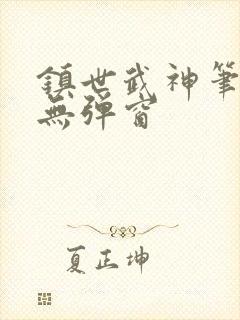 鎮世武神筆
無彈窗
夏正坤